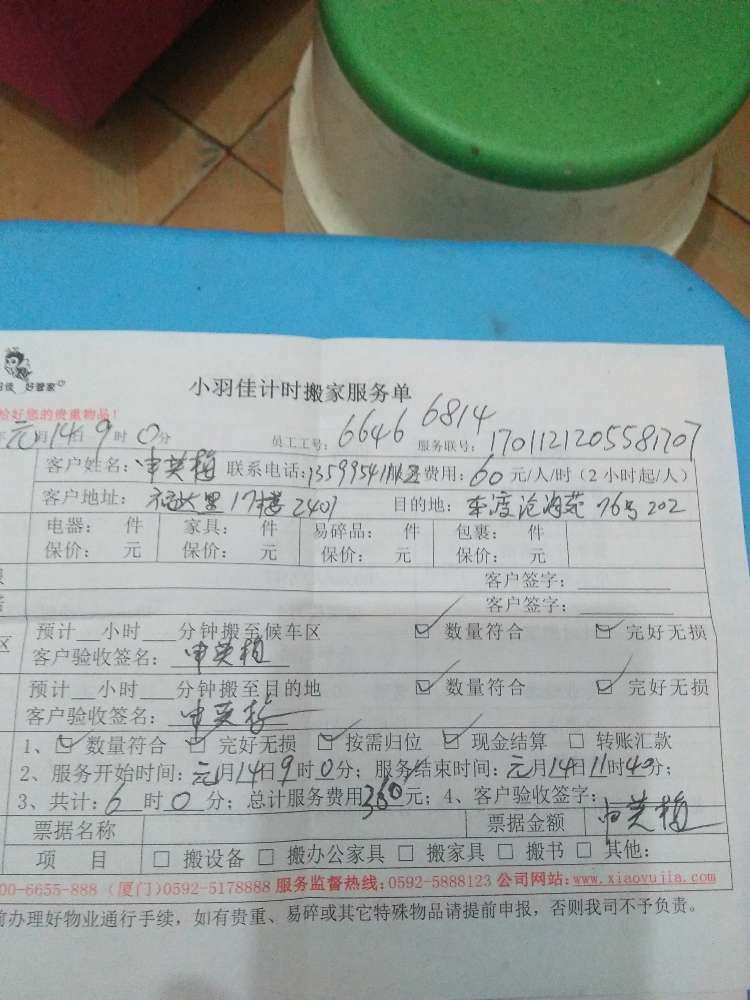 好管家
小羽佳计时搬家服务单
恰好您的贵重物品!
元月14日9时0分 员工工号: 6646 6814 服务联号: 1701121205581707
客户姓名: 申英梅 联系电话: 费用: 60 元/人/时 (2小时起/人)
客户地址: 17楼2401 目的地: 东渡沧海苑 76号202
电器: 件 家具: 件 易碎品: 件 包裹: 件
保价: 元 保价: 元 保价: 元 保价: 元
客户签字:
客户签字:
区 预计__小时___分钟搬至候车区 ☑ 数量符合 ☑ 完好无损
客户验收签名: 申英梅
预计__小时___分钟搬至目的地 ☑ 数量符合 ☑ 完好无损
客户验收签名: 申英梅
1、☑ 数量符合 ☑ 完好无损 ☑ 按需归位 ☑ 现金结算 □ 转账汇款
2、服务开始时间: 元月14日9时0分; 服务结束时间: 元月14日11时40分;
3、共计: 6 时 0 分; 总计服务费用360元; 4、客户验收签字: 申英梅
票据名称 票据金额
项 目 □ 搬设备 □ 搬办公家具 □ 搬家具 □ 搬书 □ 其他:
00-6655-888 (厦门)0592-5178888 服务监督热线: 0592-5888123 公司网站: www.xiaoyujia.com
前办理好物业通行手续, 如有贵重、易碎或其它特殊物品请提前申报, 否则我司不予负责。